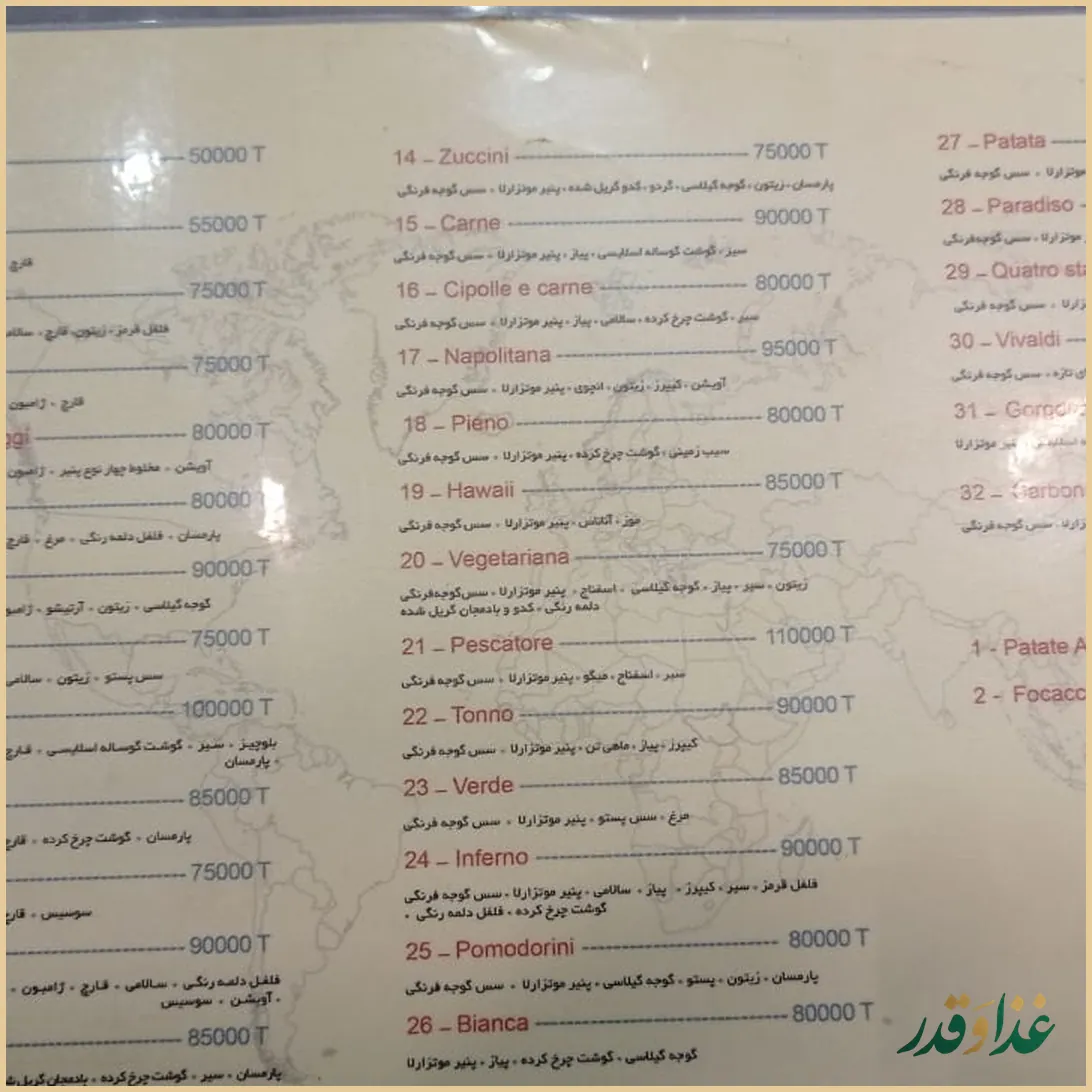 50000 T
55000 T
قارچ
75000 T
فلفل قرمز ، زیتون، قارچ ، سالامی
75000 T
قارچ ، ژامبون
ggi 80000 T
آویشن ، مخلوط چهار نوع پنیر ، ژامبون
80000
پارمسان ، فلفل دلمه رنگی ، مرغ ، قارچ
90000 T
گوجه گیلاسی ، زیتون ، آرتیشو ، ژامبو
75000 T
سس پستو ، زیتون ، سالامی
100000 T
بلوچیز ، سیر ، گوشت گوساله اسلایسی ، قارچ
، پارمسان
85000 T
پارمسان ، گوشت چرخ کرده ، قارچ
75000 T
سوسیس ، قارچ
90000 T
فلفل دلمه رنگی ، سالامی ، قارچ ، ژامبون ،
، آویشن ، سوسیس
85000 T
پارمسان ، سیر ، گوشت چرخ کرده ، بادمجان گریل شده
14 – Zuccini 75000 T
پارمسان ، زیتون ، گوجه گیلاسی ، گردو ، کدو گریل شده ، پنیر موتزارلا ، سس گوجه فرنگی
15 – Carne 90000 T
سیر ، گوشت گوساله اسلایسی ، پیاز ، پنیر موتزارلا ، سس گوجه فرنگی
16 – Cipolle e carne 80000 T
سیر ، گوشت چرخ کرده ، سالامی ، پیاز ، پنیر موتزارلا ، سس گوجه فرنگی
17 – Napolitana 95000 T
آویشن ، کیپرز ، زیتون ، انچوی ، پنیر موتزارلا ، سس گوجه فرنگی
18 – Pieno 80000 T
سیب زمینی ، گوشت چرخ کرده ، پنیر موتزارلا ، سس گوجه فرنگی
19 – Hawaii 85000 T
موز ، آناناس ، پنیر موتزارلا ، سس گوجه فرنگی
20 – Vegetariana 75000 T
زیتون ، سیر ، پیاز ، گوجه گیلاسی ، اسفناج ، پنیر موتزارلا ، سس گوجه‌فرنگی
دلمه رنگی ، کدو و بادمجان گریل شده
21 – Pescatore 110000 T
سیر ، اسفناج ، میگو ، پنیر موتزارلا ، سس گوجه فرنگی
22 – Tonno 90000 T
کیپرز ، پیاز ، ماهی تن ، پنیر موتزارلا ، سس گوجه فرنگی
23 – Verde 85000 T
مرغ ، سس پستو ، پنیر موتزارلا ، سس گوجه فرنگی
24 – Inferno 90000 T
فلفل قرمز ، سیر ، کیپرز ، پیاز ، سالامی ، پنیر موتزارلا ، سس گوجه فرنگی
گوشت چرخ کرده ، فلفل دلمه رنگی ،
25 – Pomodorini 80000 T
پارمسان ، زیتون ، پستو ، گوجه گیلاسی ، پنیر موتزارلا ، سس گوجه فرنگی
26 – Bianca 80000 T
گوجه گیلاسی ، گوشت چرخ کرده ، پیاز ، پنیر موتزارلا
27 – Patata
موتزارلا ، سس گوجه فرنگی
28 – Paradiso
موتزارلا ، سس گوجه‌فرنگی
29 – Quatro sta
سس گوجه فرنگی
30 – Vivaldi
تازه ، سس گوجه فرنگی
31 –
پنیر موتزارلا
32 – Carbon
سس گوجه فرنگی
1 - Patate A
2 - Focacc
غذا و قدر